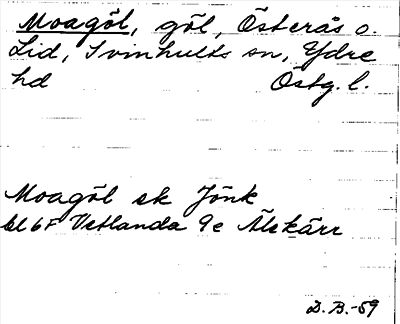 Moagöl, göl, Österås o.
Lid, Svinhults sn, Ydre
hd Östg. l.
Moagöl sk Jönk
bl 6F Vetlanda 9e Älekärr
D. B. -59